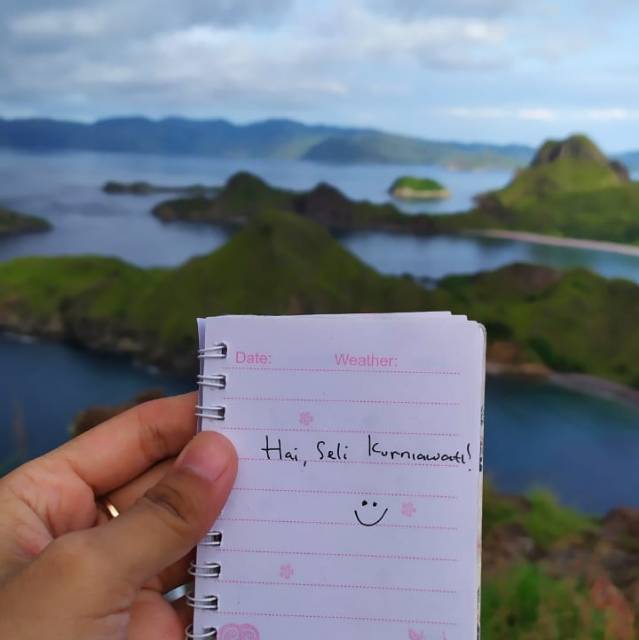 Date: Weather:
Hai, Seli Kurniawati!